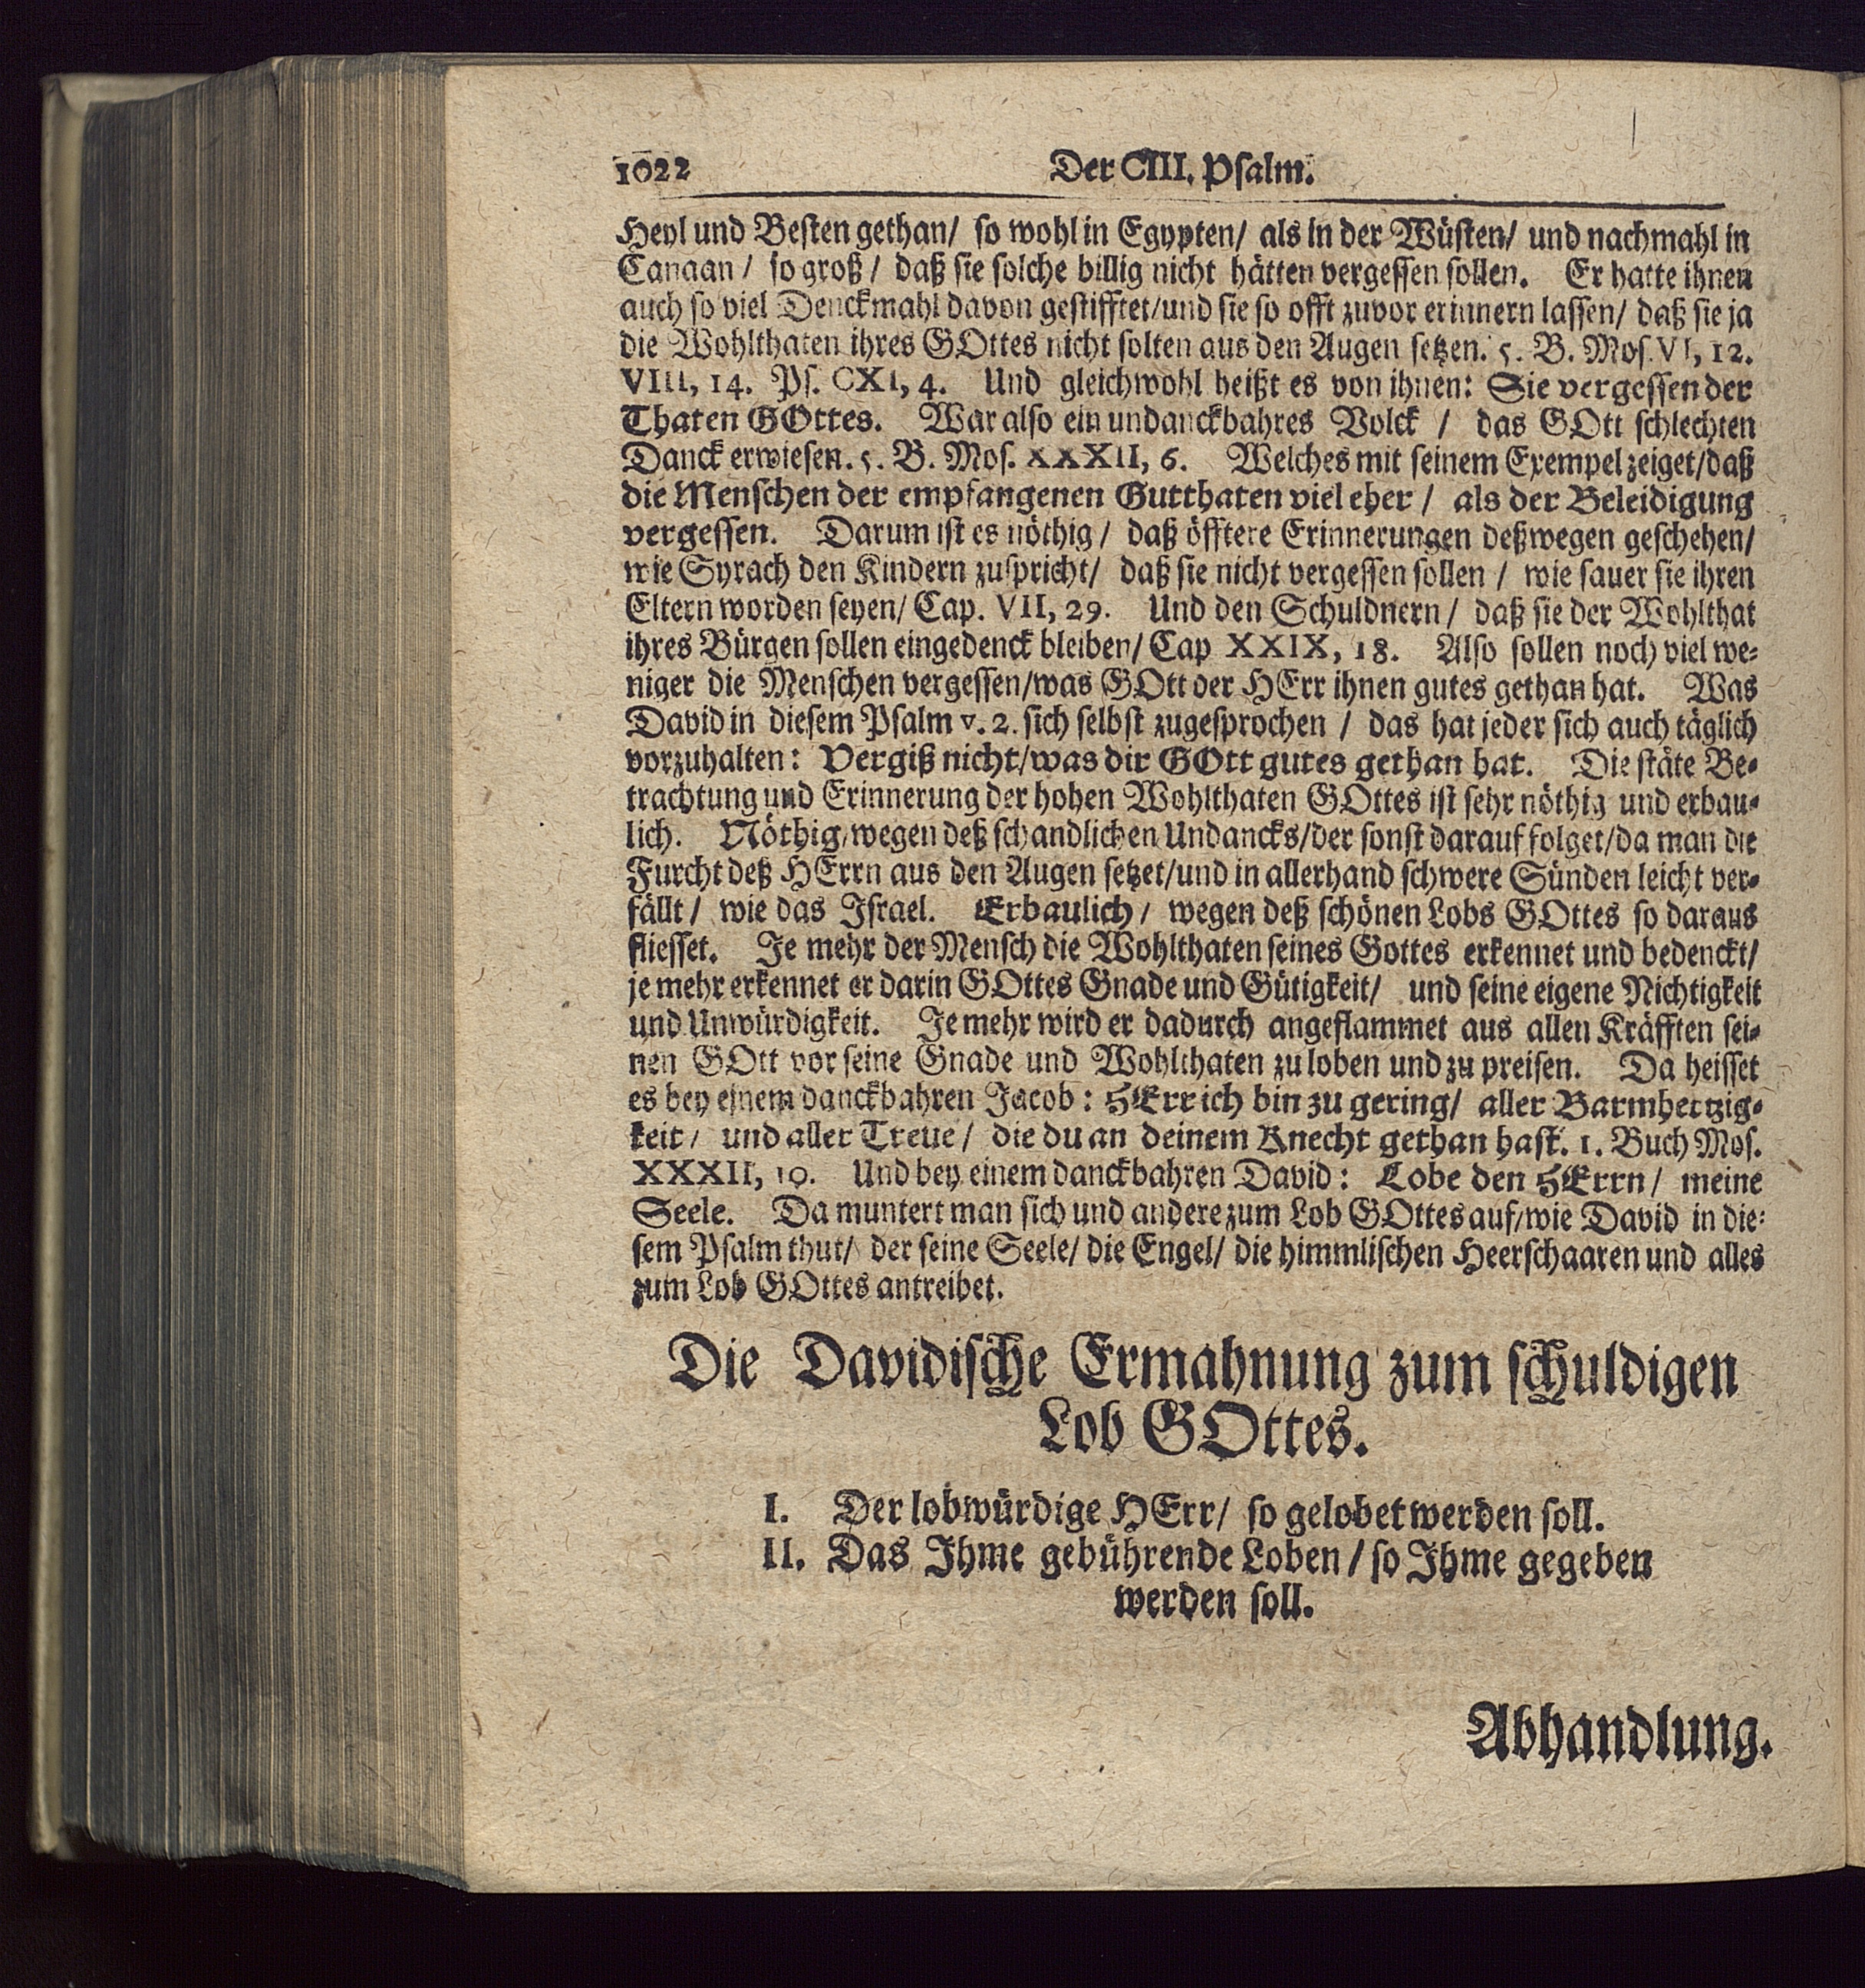 1022 Der CIII. Psalm.
Heyl und Besten gethan/ so wohl in Egypten/ als in der Wüsten/ und nachmahl in
Canaan / so groß / daß sie solche billig nicht hätten vergessen sollen. Er hatte ihnen
auch so viel Denckmahl davon gestifftet/und sie so offt zuvor erinnern lassen/ daß sie ja
die Wohlthaten ihres GOttes nicht solten aus den Augen setzen. 5. B. Mos. VI, 12.
VIII, 14. Ps. CXI, 4. Und gleichwohl heißt es von ihnen: Sie vergessen der
Thaten GOttes. War also ein undanckbahres Volck / das GOtt schlechten
Danck erwiesen. 5. B. Mos. XXXII, 6. Welches mit seinem Exempel zeiget/daß
die Menschen der empfangenen Gutthaten viel eher / als der Beleidigung
vergessen. Darum ist es nöthig / daß öfftere Erinnerungen deßwegen geschehen/
wie Syrach den Kindern zuspricht/ daß sie nicht vergessen sollen / wie sauer sie ihren
Eltern worden seyen/ Cap. VII, 29. Und den Schuldnern / daß sie der Wohlthat
ihres Bürgen sollen eingedenck bleiben/ Cap XXIX, 18. Also sollen noch viel we-
niger die Menschen vergessen/was GOtt der HErr ihnen gutes gethan hat. Was
David in diesem Psalm v. 2. sich selbst zugesprochen / das hat jeder sich auch täglich
vorzuhalten: Vergiß nicht/was dir GOtt gutes gethan hat. Die stäte Be-
trachtung und Erinnerung der hohen Wohlthaten GOttes ist sehr nöthig und erbau-
lich. Nöthig/wegen deß schandlichen Undancks/der sonst darauf folget/da man die
Furcht deß HErrn aus den Augen setzet/und in allerhand schwere Sünden leicht ver-
fällt / wie das Israel. Erbaulich / wegen deß schönen Lobs GOttes so daraus
fliesset. Je mehr der Mensch die Wohlthaten seines Gottes erkennet und bedenckt/
je mehr erkennet er darin GOttes Gnade und Gütigkeit/ und seine eigene Nichtigkeit
und Unwürdigkeit. Je mehr wird er dadurch angeflammet aus allen Kräfften sei-
nen GOtt vor seine Gnade und Wohlthaten zu loben und zu preisen. Da heisset
es bey einem danckbahren Jacob: HErr ich bin zu gering/ aller Barmhertzig-
keit / und aller Treue / die du an deinem Knecht gethan hast. 1. Buch Mos.
XXXII, 10. Und bey einem danckbahren David: Lobe den HErrn / meine
Seele. Da muntert man sich und andere zum Lob GOttes auf/wie David in die-
sem Psalm thut/ der seine Seele/ die Engel/ die himmlischen Heerschaaren und alles
zum Lob GOttes antreibet.
Die Davidische Ermahnung zum schuldigen
Lob GOttes.
I. Der lobwürdige HErr/ so gelobet werden soll.
II. Das Ihme gebührende Loben / so Ihme gegeben
werden soll.
Abhandlung.